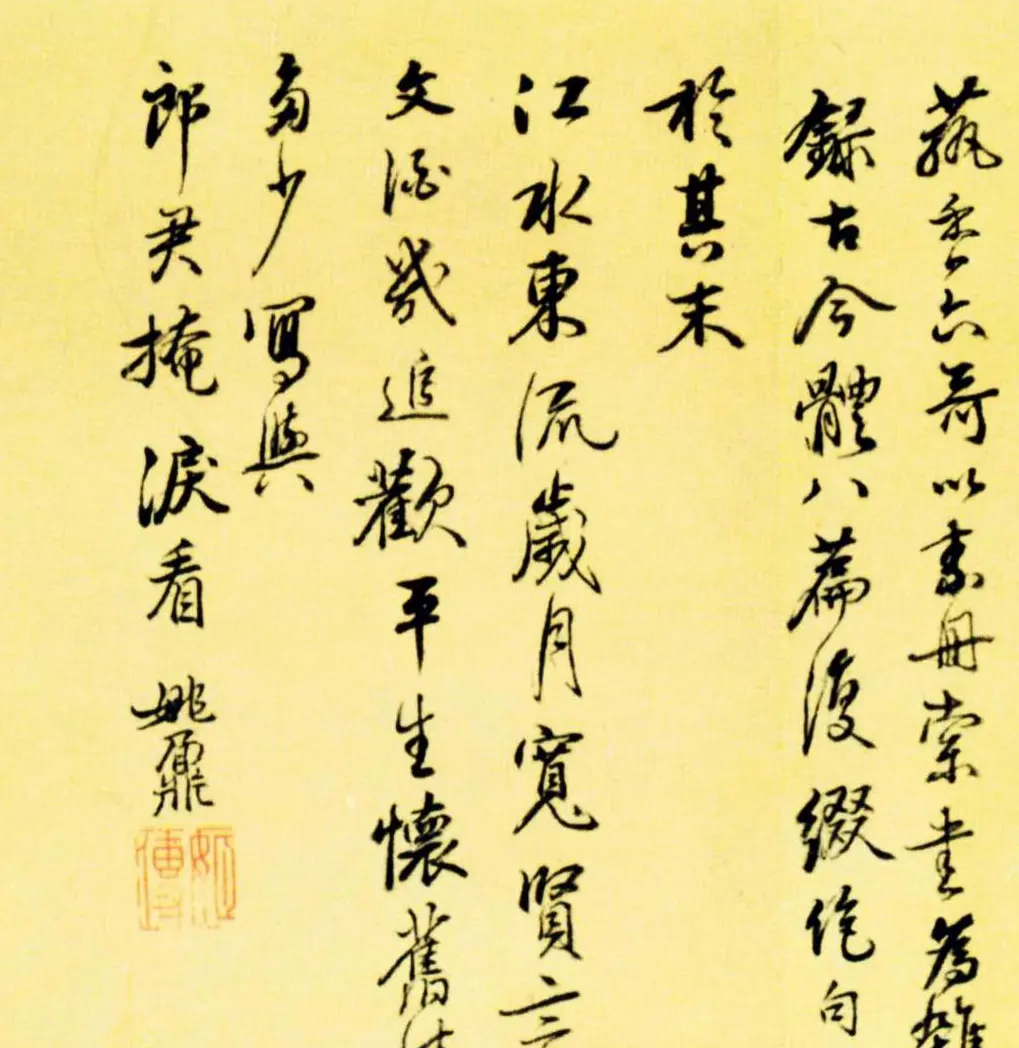 蓺香六哥以素冊索書為雜
錄古今體八篇復綴絕句
於其末
江水東流歲月寬賢
文酒幾追歡平生懷舊
多少寫與
郎君掩淚看 姚鼐
姬傳